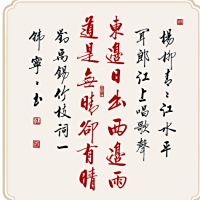 楊柳青〻江水平
聞郎江上唱歌聲
東邊日出西邊雨
道是無晴卻有晴
劉禹錫竹枝詞一